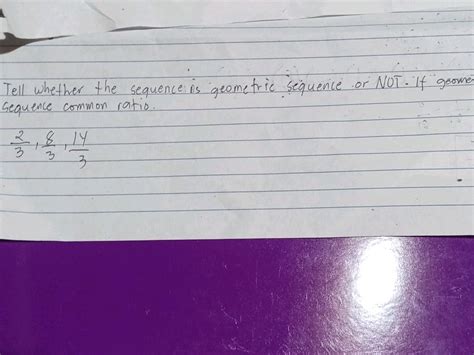 Tell whether the sequence is geometric sequence or NOT. If geome
sequence common ratio.
2/3, 8/3, 14/3